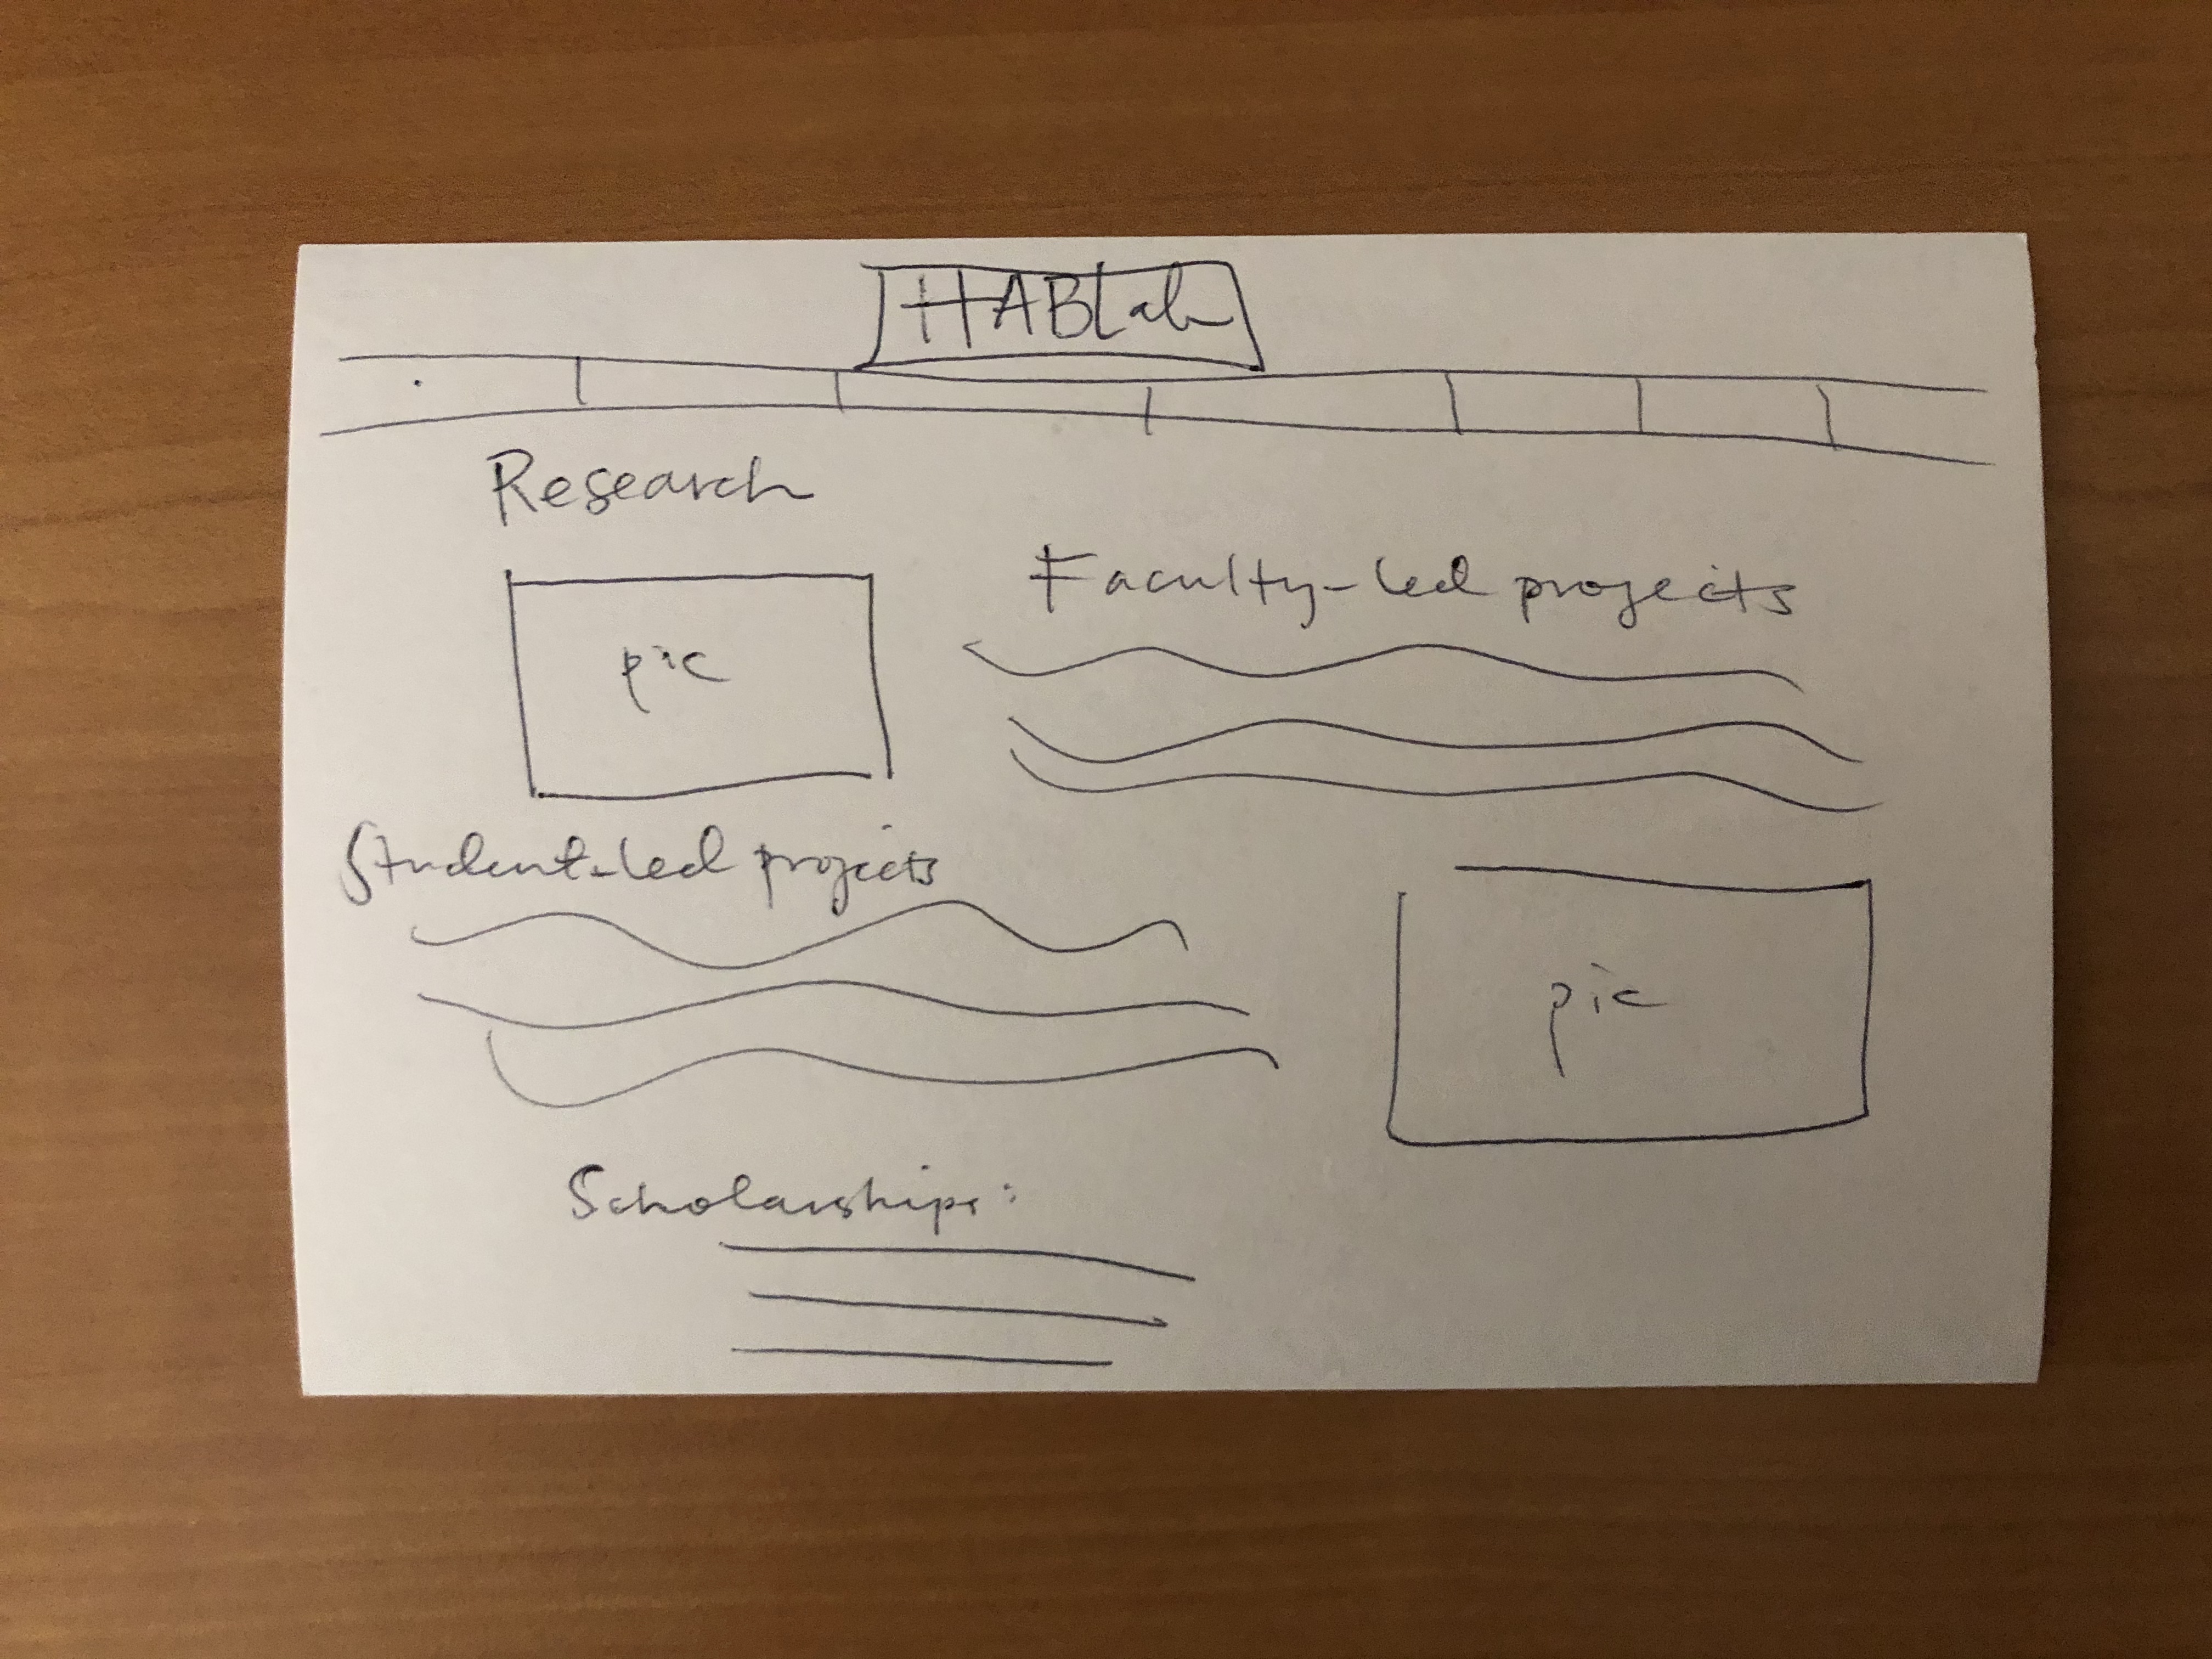 HABLab
Research
pic
Faculty-led projects
Student-led projects
pic
Scholarships: